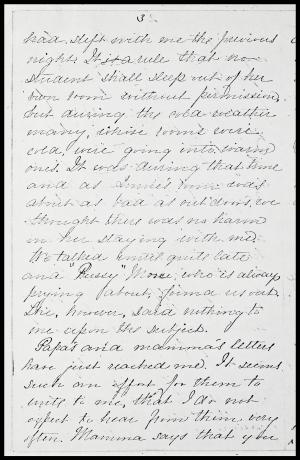 3
had slept with me the previous
night. It is a rule that no
student shall sleep out of her
own room without permission,
but during the cold weather
many, whose rooms were
cold, were going into warm
ones. It was during that time
and as Annie's room was
about as bad as outdoors, we
thought there was no harm
in her staying with me.
We talked until quite late
and "Pussy" More, who is always
prying about, found us out.
She, however, said nothing to
me upon the subject.
Papa's and mamma's letters
have just reached me. It seems
such an effort for them to
write to me, that I do not
expect to hear from them very
often. Mamma says that you